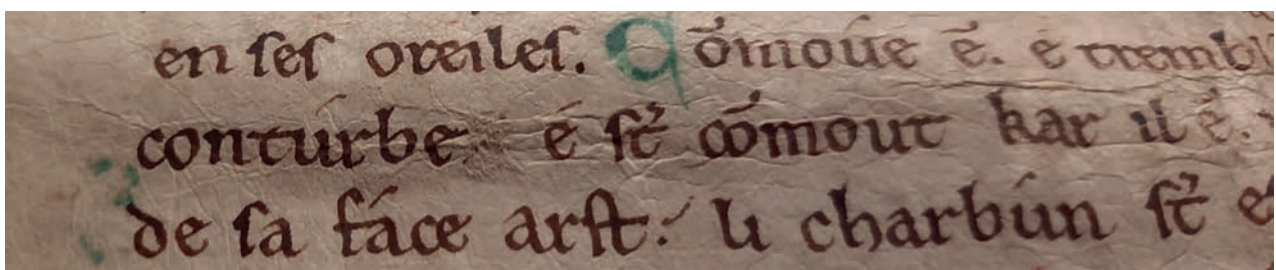 en ses oreiles. Cōmoúe ē. e trembl
contúrbe é st̄ cōmout kar il ē.
de sa fáce arst: li charbún st̄ e